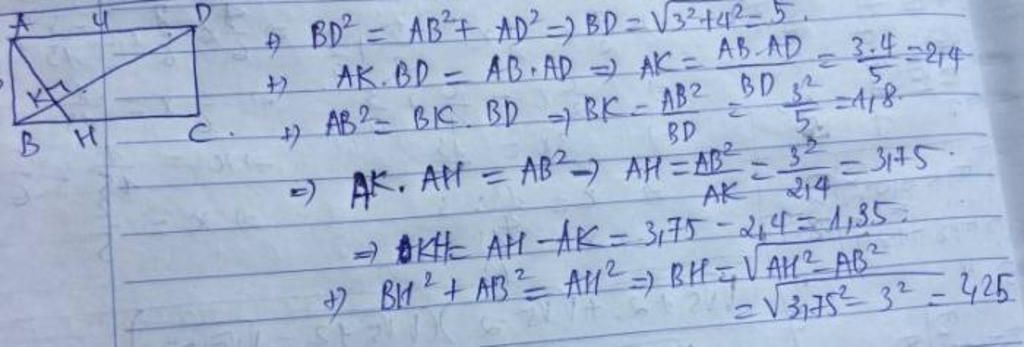 A 4 D
K
B H C
+) BD² = AB² + AD² => BD = √3²+4² = 5.
+) AK.BD = AB.AD => AK = AB.AD/BD = 3.4/5 = 2,4
+) AB² = BK.BD => BK = AB²/BD = 3²/5 = 1,8.
=> AK.AH = AB² => AH = AB²/AK = 3²/2,4 = 3,75.
=> KH = AH - AK = 3,75 - 2,4 = 1,35.
+) BH² + AB² = AH² => BH = √AH² - AB²
= √3,75² - 3² = 2,25